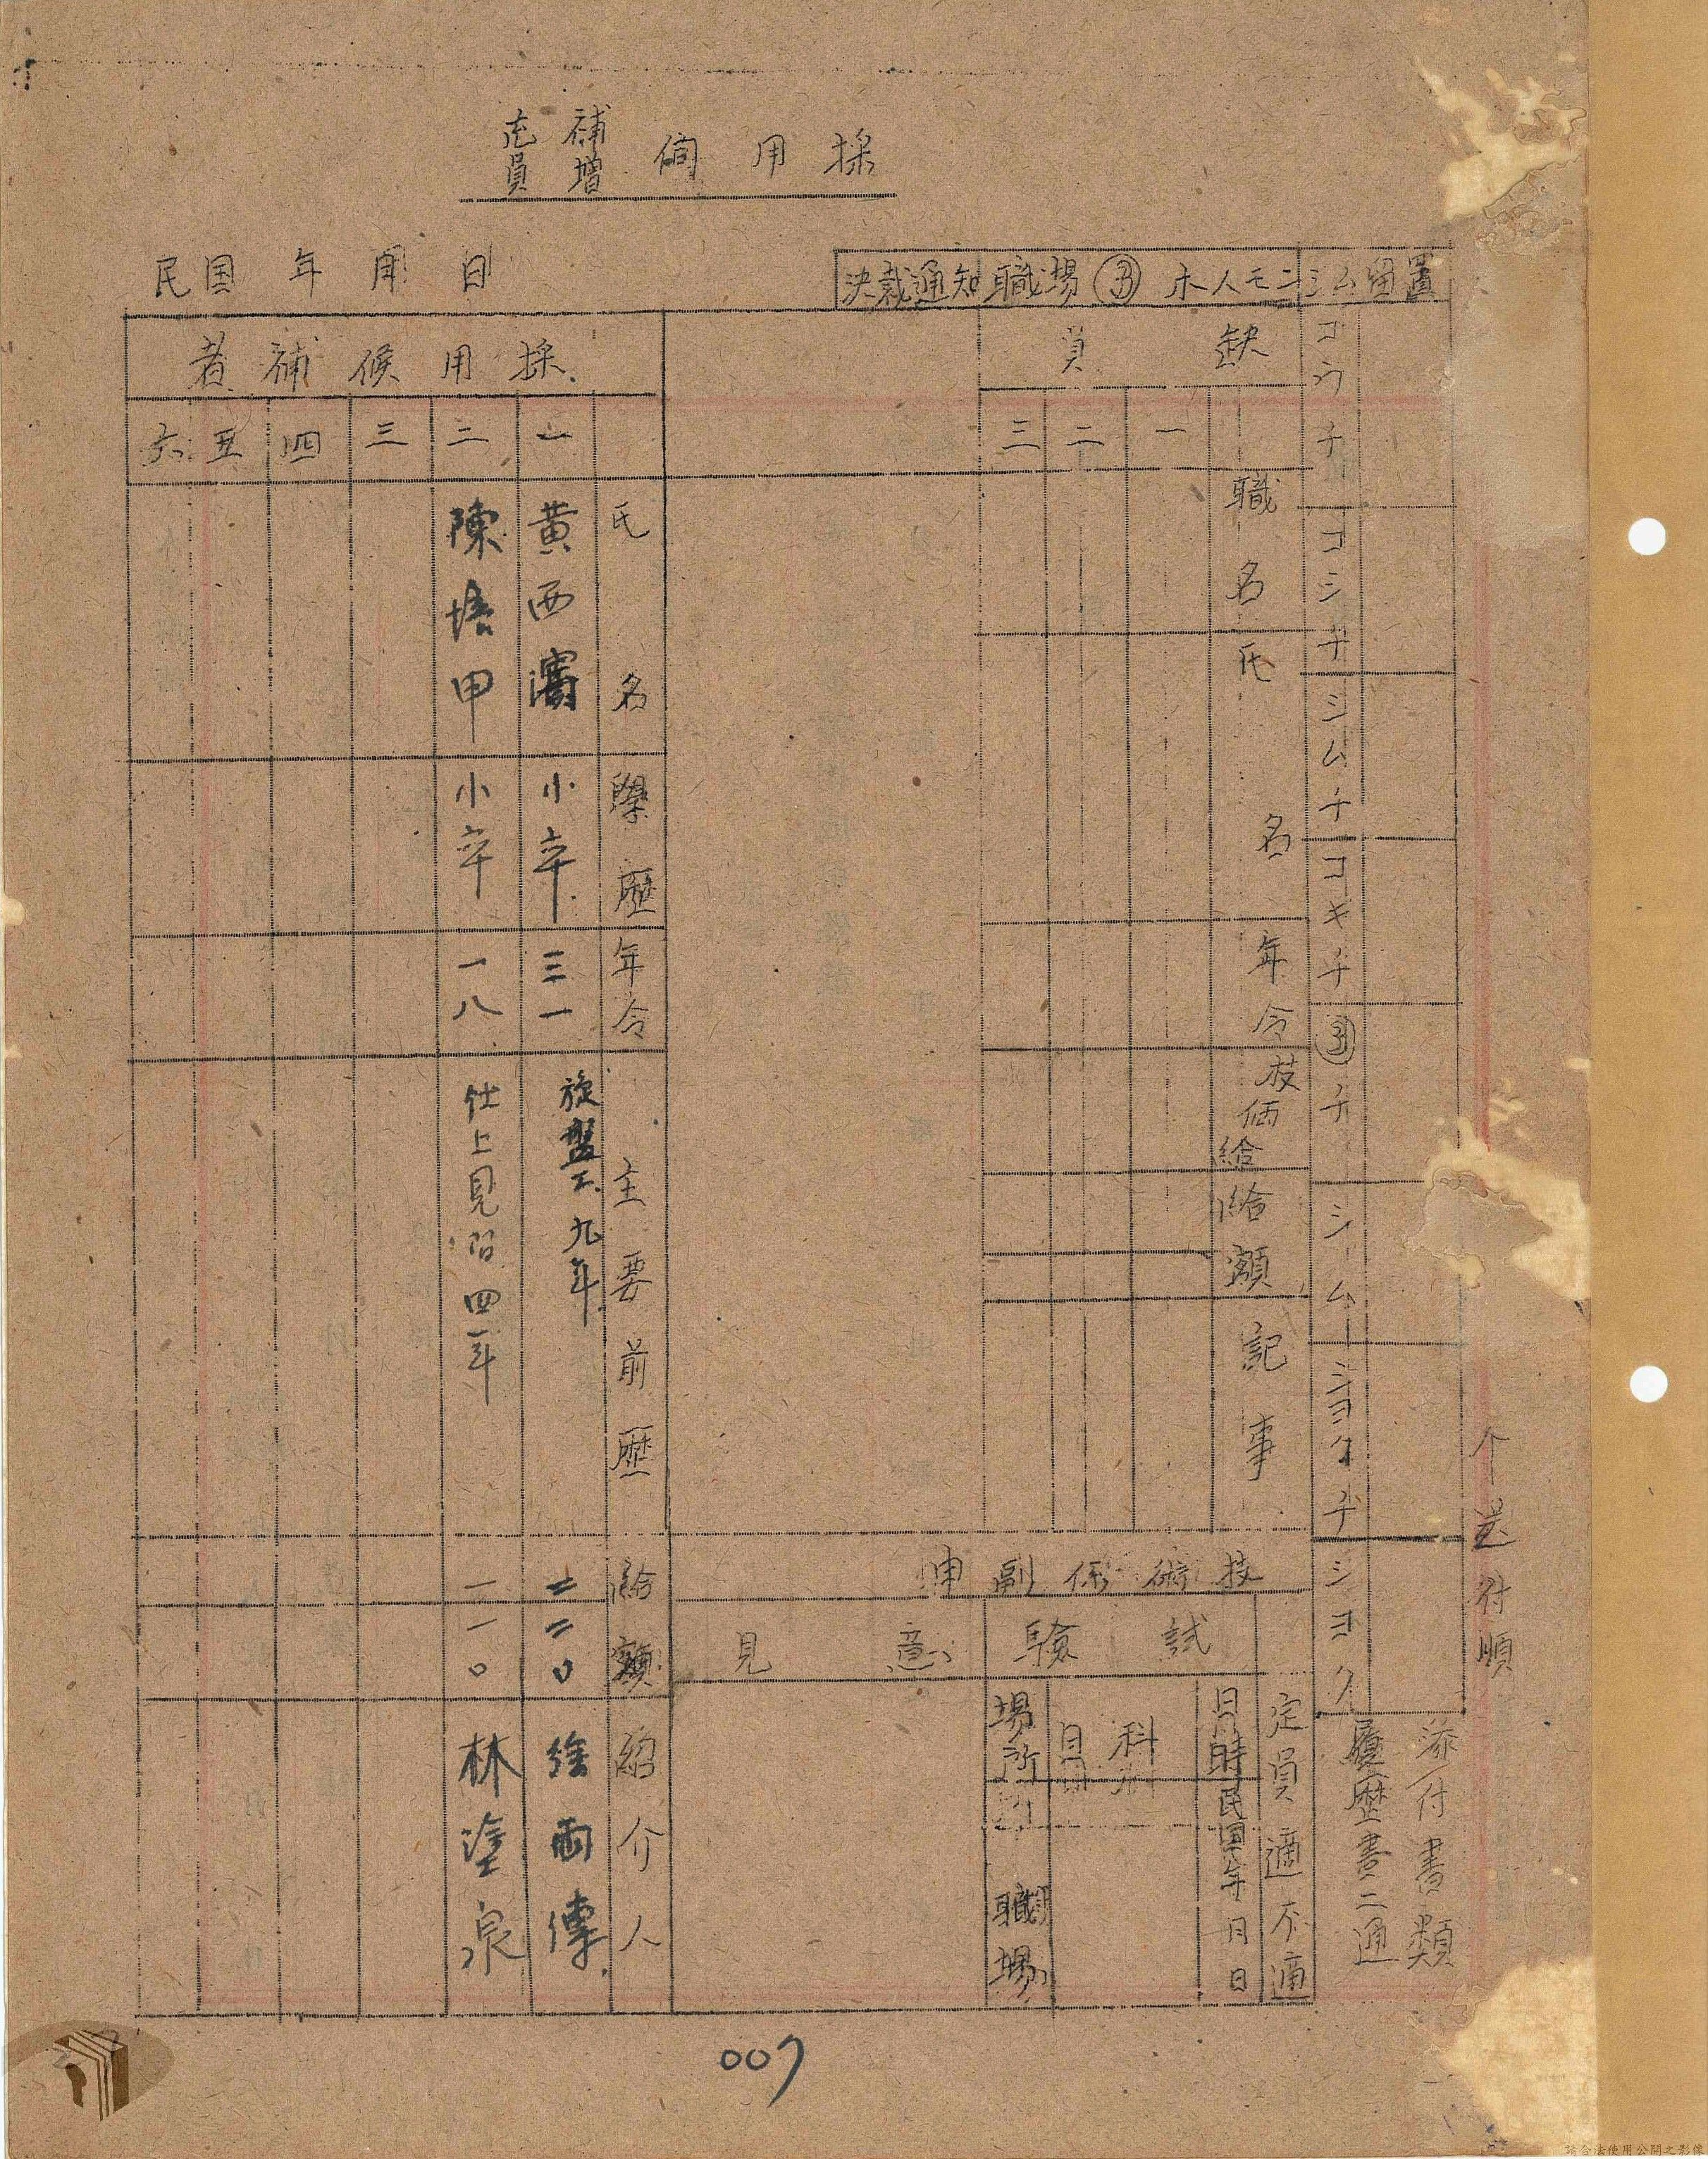 採用伺 補充 增員
民国 年 月 日
決裁通知 職場 ホ人モニシム留置
コウチ
コシチ
シムチ
コキチ
チ
シム
ショクチ
ショク
个送付順
添付書類
履歴書二通
缺員
一 二 三
職名
氏名
年令
技価給
給額
記事
技術係副申
試験
意見
定員 適 不適
日時 民国 年 月 日
科目
場所
職場
採用候補者
一 二 三 四 五 六
氏名
學歷
年令
主要前歷
給額
紹介人
黃西
小卒
三一
旋盤工 九年
二二〇
徐雨傳
陳培甲
小卒
一八
仕上見習 四年
一一〇
林塗泉
007
請合法使用公開之影像